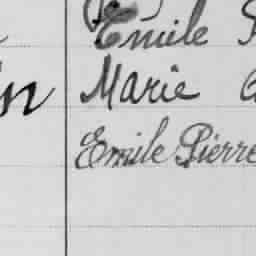 Emile
in Marie
Emile Pierre